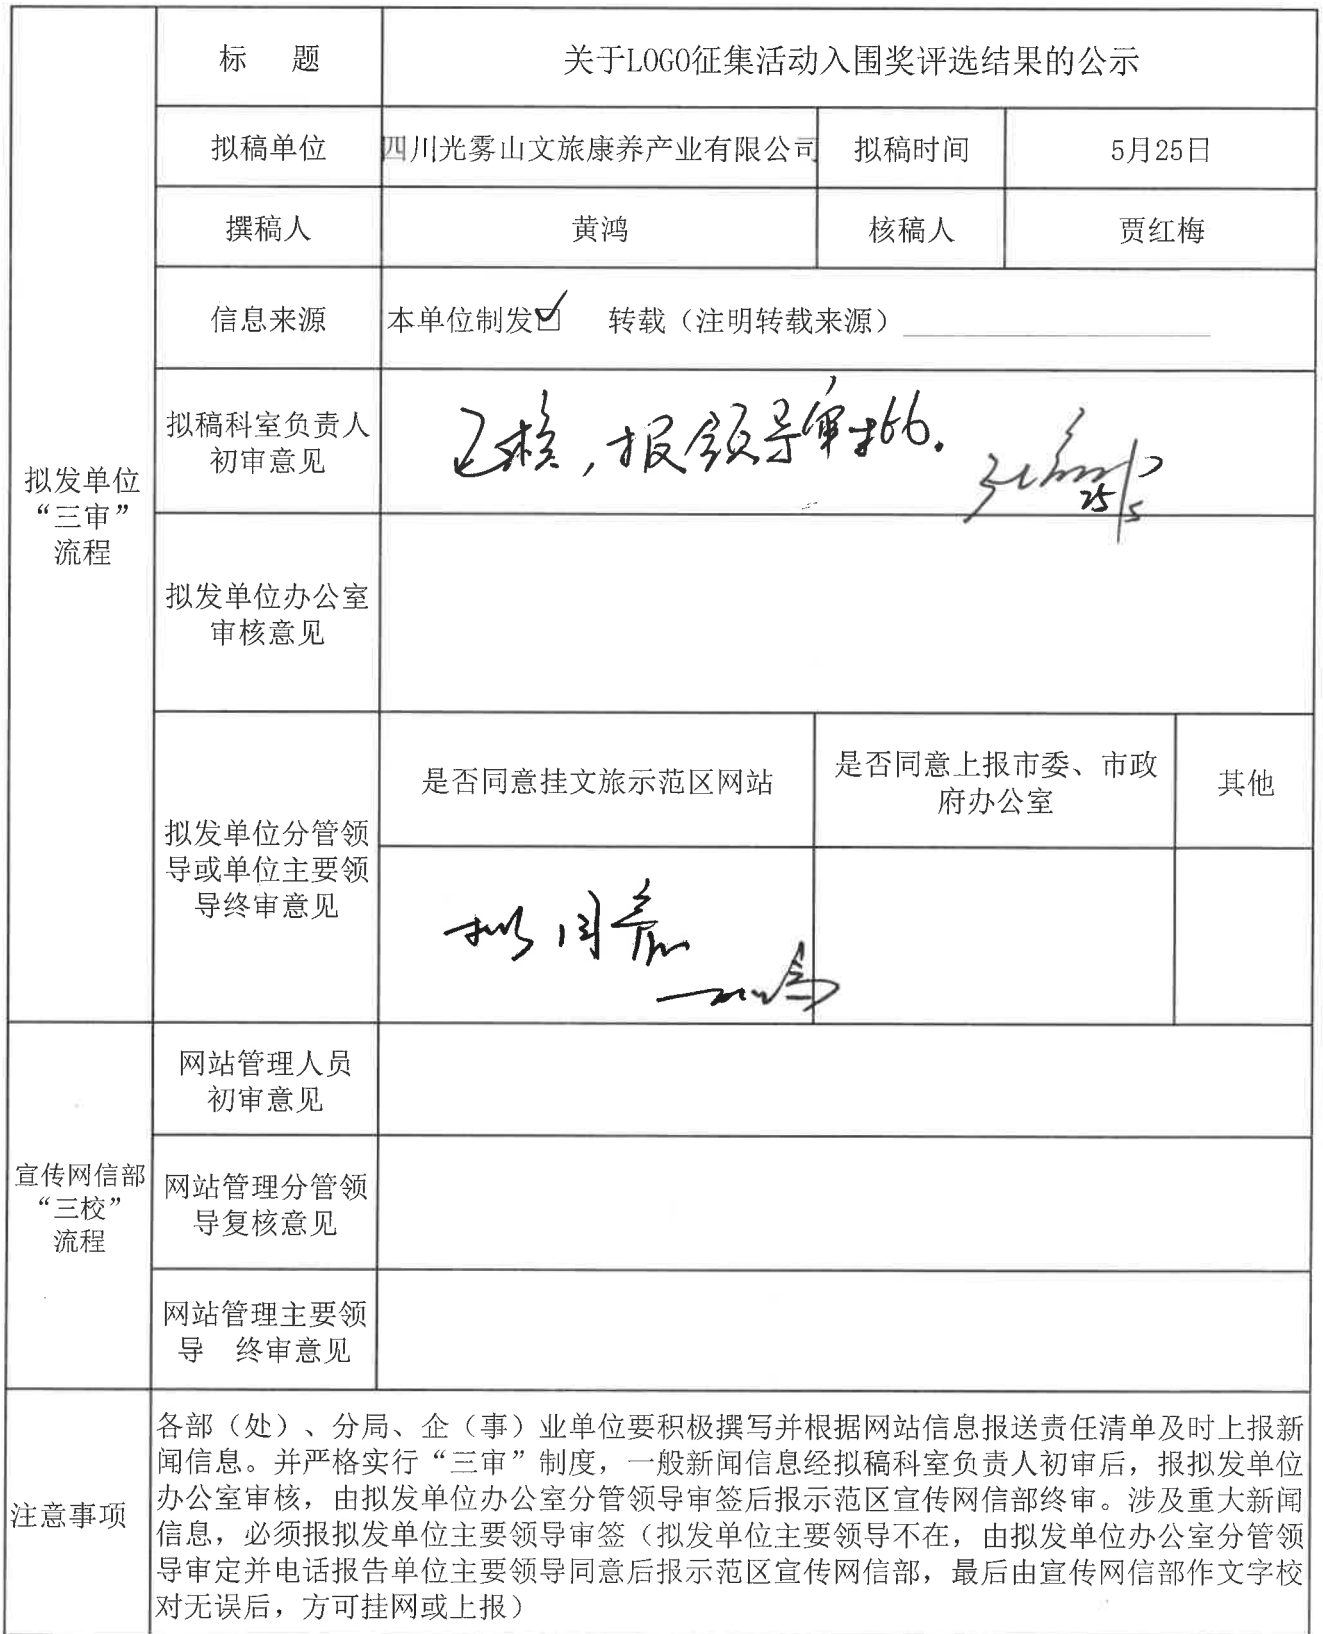 标 题
关于LOGO征集活动入围奖评选结果的公示
拟稿单位
四川光雾山文旅康养产业有限公司
拟稿时间
5月25日
撰稿人
黄鸿
核稿人
贾红梅
信息来源
本单位制发☑ 转载（注明转载来源）
拟发单位
“三审”
流程
拟稿科室负责人
初审意见
已核，报领导审批。
25/5
拟发单位办公室
审核意见
拟发单位分管领
导或单位主要领
导终审意见
是否同意挂文旅示范区网站
是否同意上报市委、市政
府办公室
其他
拟同意
宣传网信部
“三校”
流程
网站管理人员
初审意见
网站管理分管领
导复核意见
网站管理主要领
导 终审意见
注意事项
各部（处）、分局、企（事）业单位要积极撰写并根据网站信息报送责任清单及时上报新
闻信息。并严格实行“三审”制度，一般新闻信息经拟稿科室负责人初审后，报拟发单位
办公室审核，由拟发单位办公室分管领导审签后报示范区宣传网信部终审。涉及重大新闻
信息，必须报拟发单位主要领导审签（拟发单位主要领导不在，由拟发单位办公室分管领
导审定并电话报告单位主要领导同意后报示范区宣传网信部，最后由宣传网信部作文字校
对无误后，方可挂网或上报）